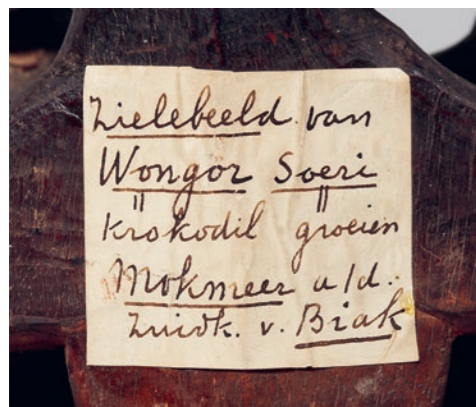 Zielebeeld van
Wongor Soeri
" "
krokodil groeien
Mokmeer a/d.
Zuidk. v. Biak